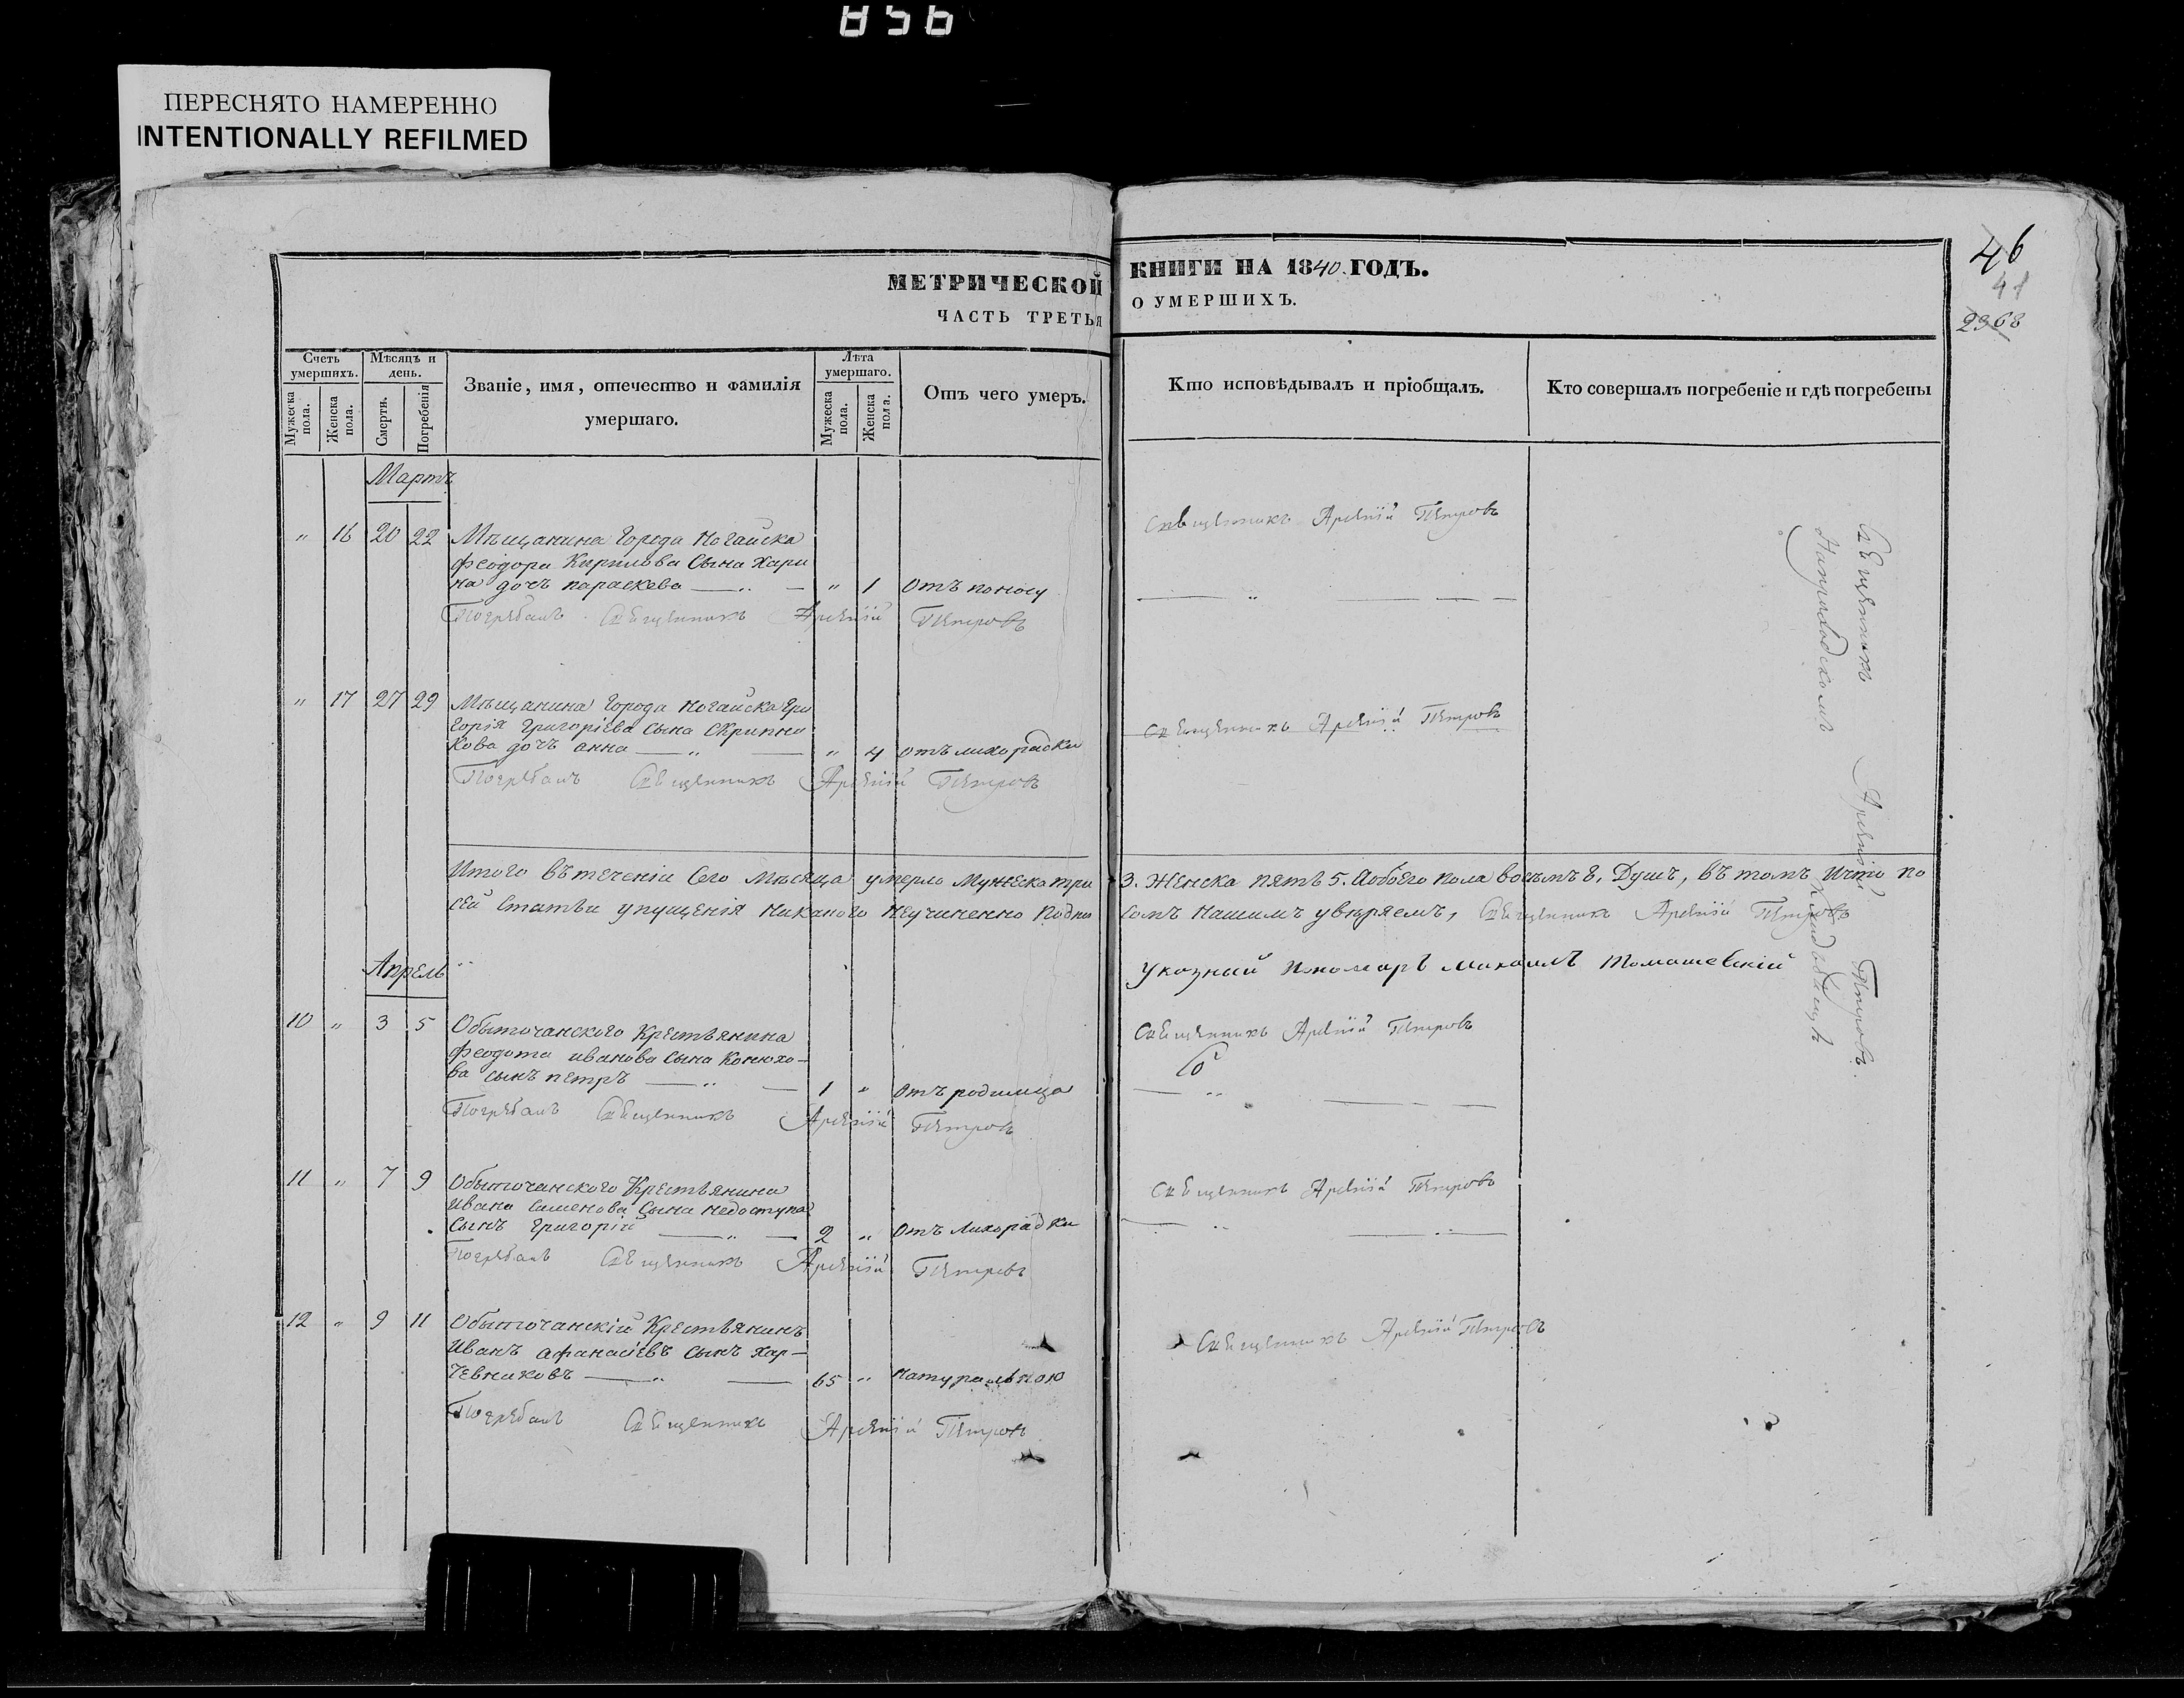 856
ПЕРЕСНЯТО НАМЕРЕННО
INTENTIONALLY REFILMED
МЕТРИЧЕСКОЙ КНИГИ НА 1840 ГОДЪ.
ЧАСТЬ ТРЕТЬЯ О УМЕРШИХЪ.
46
41
2368
Счетъ умершихъ.
Мужеска пола.
Женска пола.
Мѣсяцъ и день.
Смерти.
Погребенія
Званіе, имя, отечество и фамилія
умершаго.
Лѣта умершаго.
Мужеска пола.
Женска пола.
Отъ чего умеръ.
Кто исповѣдывалъ и пріобщалъ.
Кто совершалъ погребеніе и гдѣ погребены
Мартъ
" 16 20 22 Мѣщанина Города Ногайска
Феодора Кирилова Сына Хари
на дочъ параскева — " — " 1 Отъ поносу
Погребалъ Священникъ Арсений Петровъ
Священникъ Арсений Петровъ
" 17 27 29 Мѣщанина Города Ногайска Гри
горія Григоріева Сына Скрипни
кова дочъ анна — " — " 4 отъ лихорадки
Погребалъ Священникъ Арсений Петровъ
Священникъ Арсений Петровъ
Итого въ теченіи Сего Мѣсяца умерло Мужеска три 3. Женска пять 5. Аобоего пола восьмъ 8. Душъ, въ томъ Что по
сей Статьи упущенія Никакого Неучиненно Подпи сомъ Нашимъ увѣряемъ, Священникъ Арсений Петровъ
Указный Пономаръ Михаилъ Томашевскій
Апрель
10 " 3 5 Обыточанского Крестьянина
Феодота иванова Сына Конюхо-
ва сынъ петръ — " — 1 " Отъ родимца
Погребалъ Священникъ Арсений Петровъ
Священникъ Арсений Петровъ
11 " 7 9 Обыточанского Крестьянина
Ивана Семенова Сына Недоступа
Сынъ Григорій — " — 2 " Отъ Лихорадки
Погребалъ Священникъ Арсений Петровъ
Священникъ Арсений Петровъ
12 " 9 11 Обыточанскій Крестьянинъ
Иванъ Афанасіевъ Сынъ Хар-
чевниковъ — " — 65 " Натуральною
Погребалъ Священникъ Арсений Петровъ
Священникъ Арсений Петровъ
Священникъ Арсений Петровъ
На приходскомъ кладбищѣ